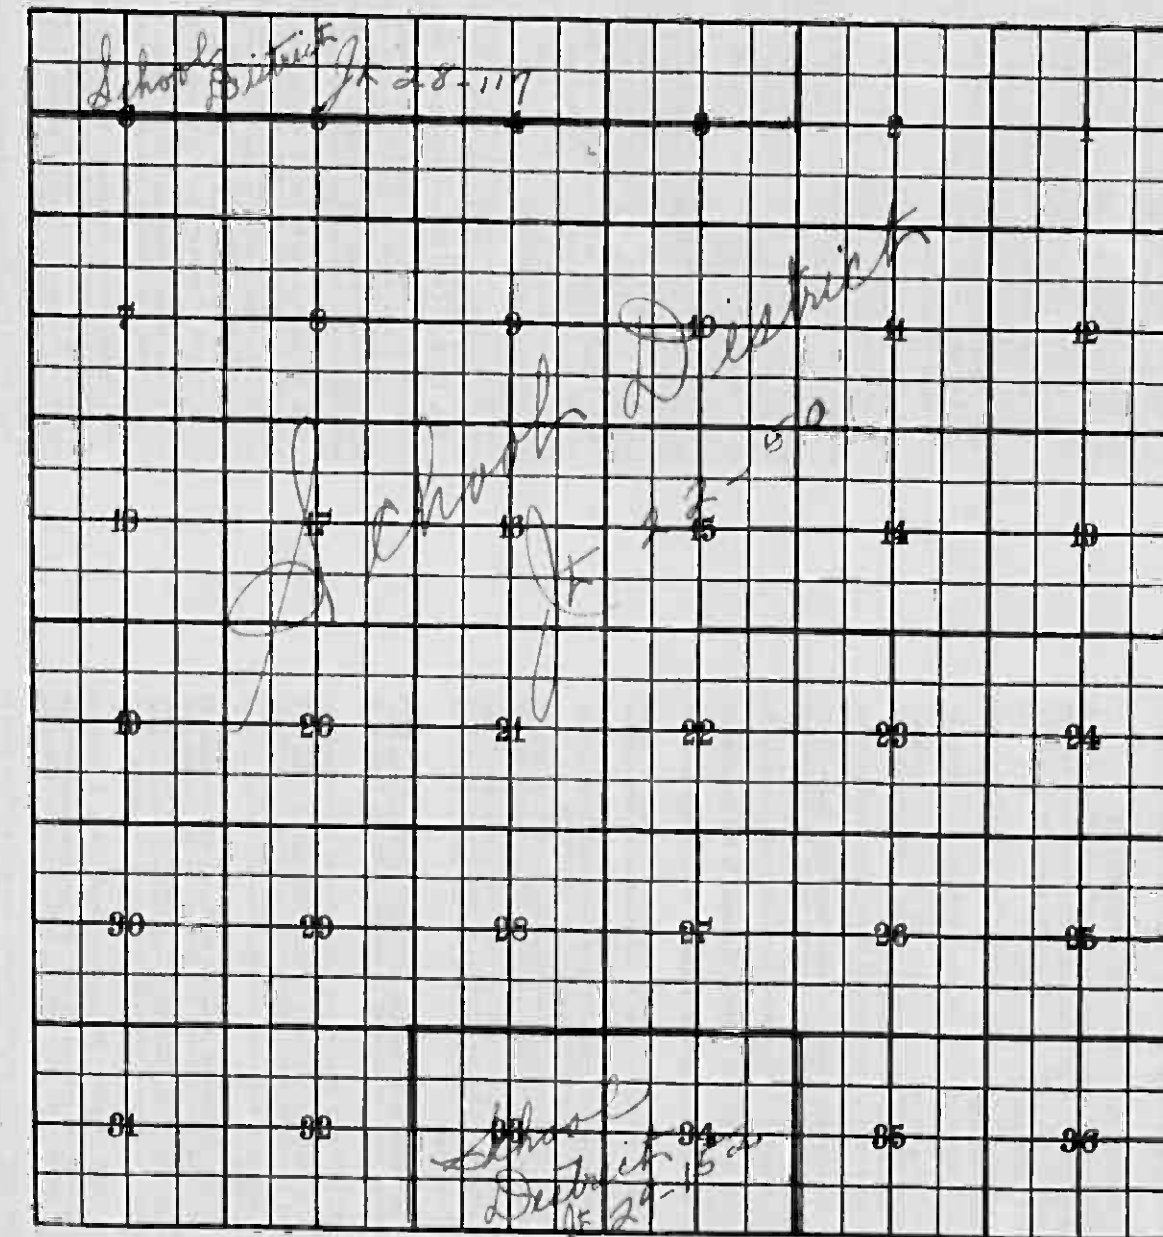 School District Jt 28-117
6 5 4 3 2 1
7 8 9 10 11 12
School District
18 17 16 15 14 13
Jt
19 20 21 22 23 24
30 29 28 27 26 25
31 32 33 34 35 36
School
District
Jt 29-